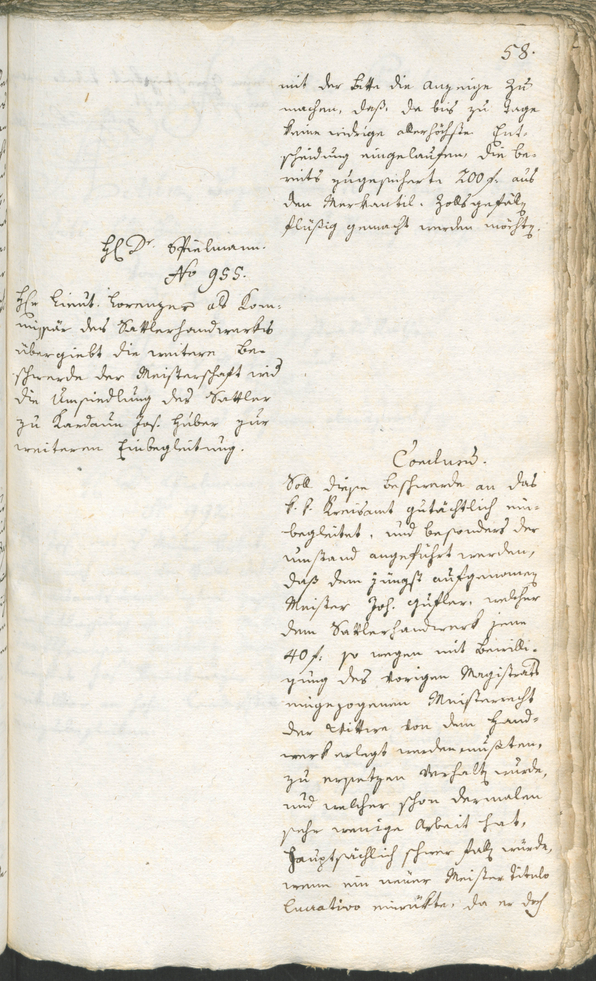 58.
mit der Bitte die Anzeige zu
machen, daß, da bis zu Tage
keine widrige allerhöchste Ent-
scheidung eingelaufen, die be-
reits zugesicherte 200 f. aus
den Merkantil. Zollsgefäll
flüßig gemacht werden möchte.
H. Dr. Spielmann.
No 955.
Hr. Lieut. Lorenzer als Kom-
missär des Sattlerhandwerks
übergiebt die weitere Be-
schwerde der Meisterschaft wid
die Umsiedlung des Sattler
zu Kardaun Jos. Huber zur
weiteren Einbegleitung.
Conclusum.
Soll diese Beschwerde an das
k. k. Kreisamt gutächtlich ein-
begleitet, und besonders der
Umstand angeführt werden,
daß dem jüngst aufgenomenen
Meister Joh. Gufler, welcher
dem Sattlerhandwerk jene
40 f. so wegen mit Bewilli-
gung des vorigen Magistrats
eingezogenen Meisterrecht
der Wittwe von dem Hand-
werk erlegt werden mußten,
zu ersetzen verhalten wurde,
und welcher schon dermalen
sehr wenige Arbeit hat,
hauptsächlich schwer fallen würde,
wenn ein neuer Meister titulo
lucrativo einrükte, da er doch